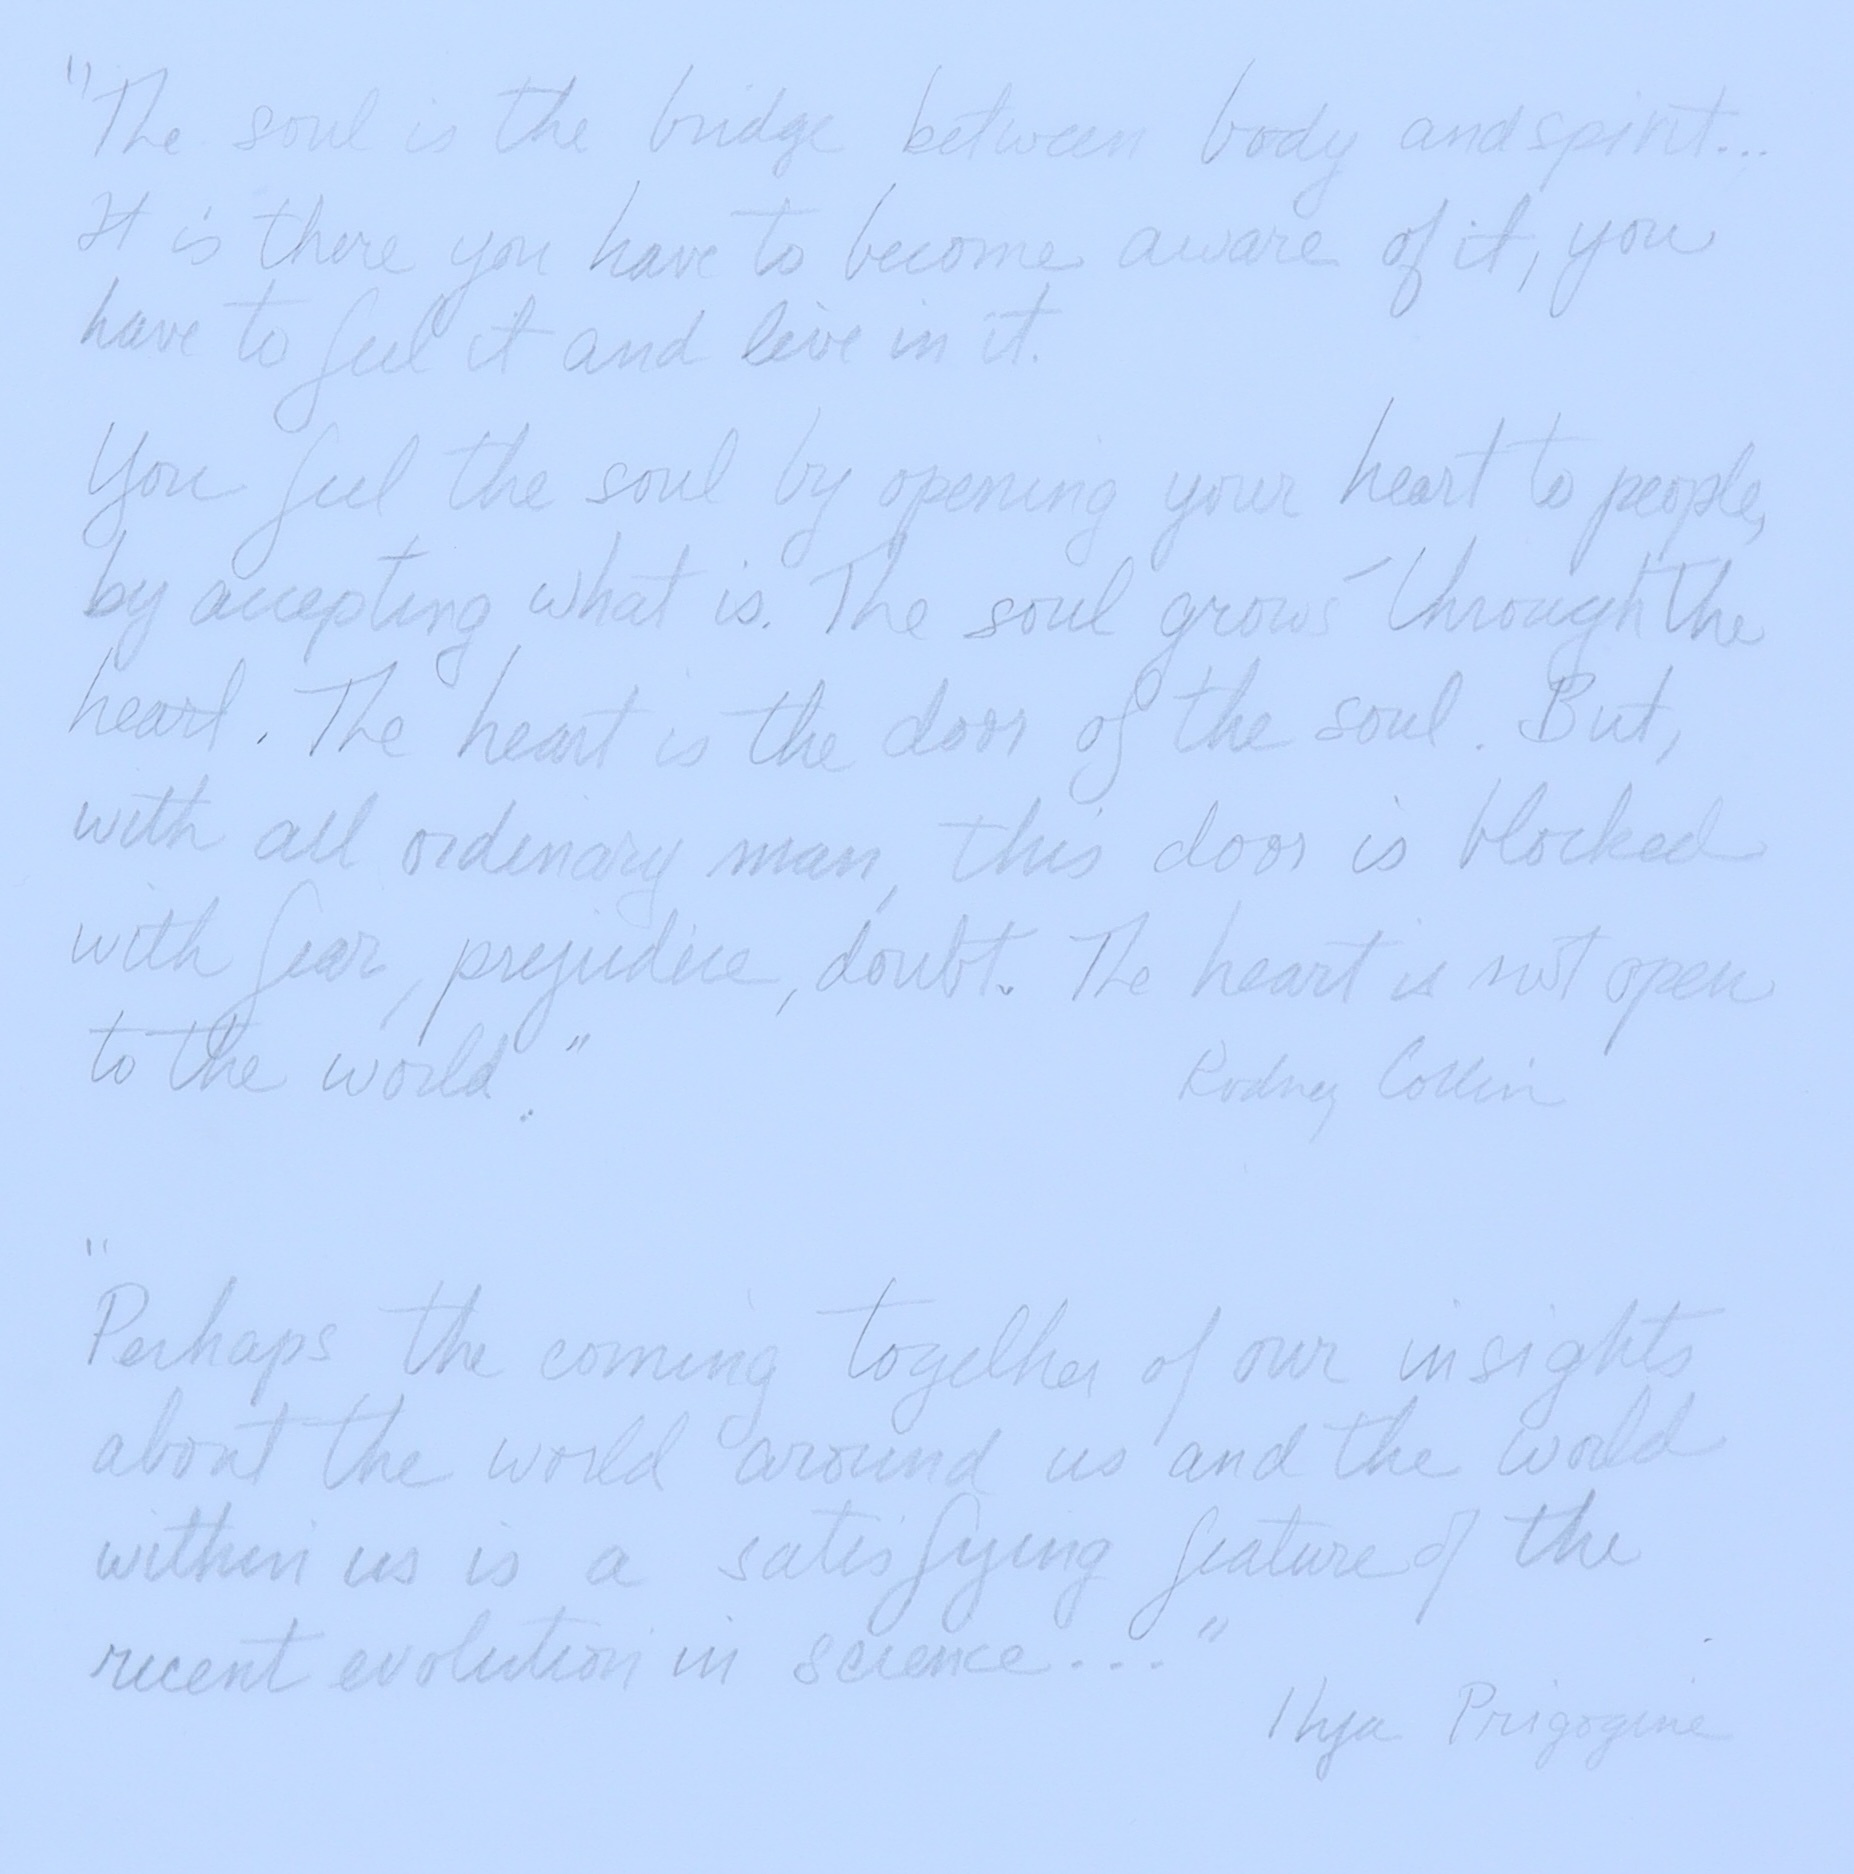 "The soul is the bridge between body and spirit...
It is there you have to become aware of it, you
have to feel it and live in it.
You feel the soul by opening your heart to people,
by accepting what is. The soul grows through the
heart. The heart is the door of the soul. But,
with all ordinary man, this door is blocked
with fear, prejudice, doubt. The heart is not open
to the world."
Rodney Collin
"Perhaps the coming together of our insights
about the world around us and the world
within us is a satisfying feature of the
recent evolution in science..."
Ilya Prigogine